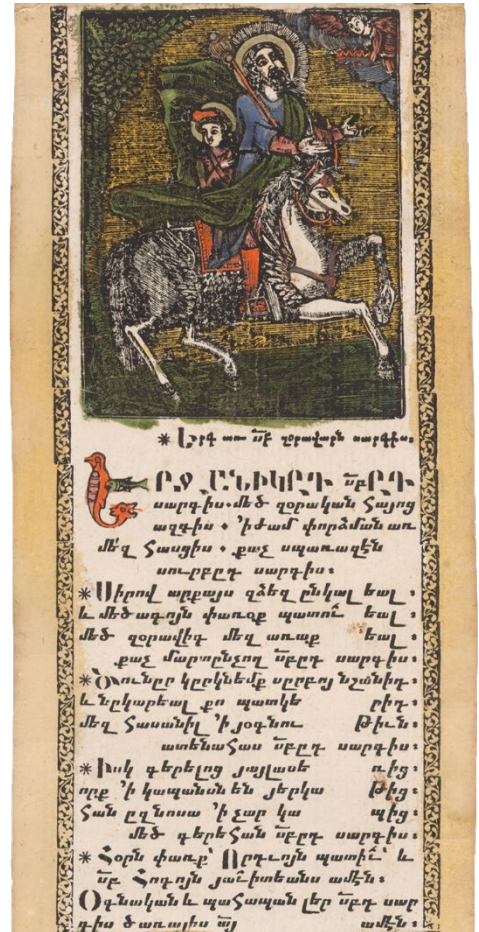 * Երգ առ ս՟բ զօրավարն սարգիս։
ԵՐՋԱՆԻԿՂԴ ս՟բՂԴ
սարգիս․մեծ զօրական Հայոց
ազգիս ․ 'ի ժամ փորձման առ
մեզ Հասցիս ․ քաջ սպառազէն
սուրբըդ սարգիս։
* Սիրով արքայս զձեզ ընկալ եալ ։
և մեծագոյն փառօք պատուե՟ եալ ։
մեծ զօրավիգ մեզ առաք եալ ։
քաջ մարտընչող ս՟բըդ սարգիս։
* Ծունըր կըրկնեմք սըրբոյ նշանիդ ։
և նըկարեալ քո պատկե րիդ ։
մեզ Հասանիլ 'ի յօգնու Թիւն ։
ամենաՀաս ս՟բըդ սարգիս։
* Իսկ գերելոց յայլասե ռից ։
որք 'ի կապանսն են յերկա Թից ։
Հան ըզնոսա 'ի չար կա պից ։
մեծ գերեՀան ս՟բըդ սարգիս։
* Հօրն փառք՝ Որդւոյն պատիւ՟ և
ս՟բ Հոգոյն յաւ՟իտեանս ամէն ։
Օգնական և պաՀապան լեր ս՟բդ սար
գիս ծառայիս ա՟յ ամէն ։